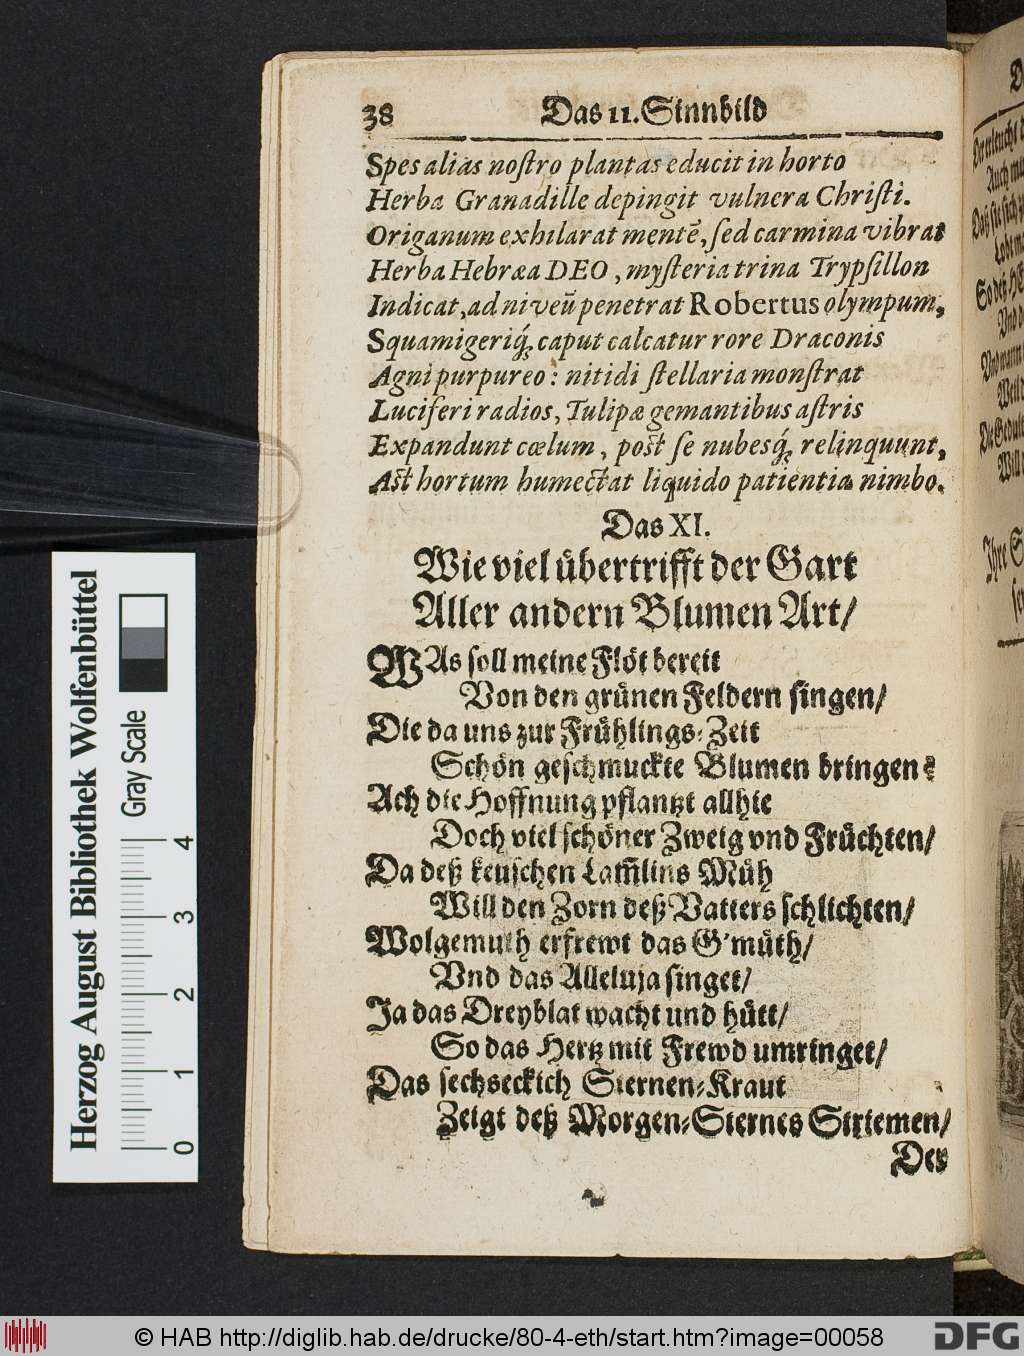 38 Das 11. Sinnbild
Spes alias noſtro plantas educit in horto
Herba Granadille depingit vulnera Chriſti.
Origanum exhilarat mentē, ſed carmina vibrat
Herba Hebræa DEO, myſteria trina Trypſillon
Indicat, ad niveū penetrat Robertus olympum,
Squamigeriq́; caput calcatur rore Draconis
Agni purpureo: nitidi ſtellaria monſtrat
Luciferi radios, Tulipæ gemantibus aſtris
Expandunt cœlum, poſt ſe nubesq́; relinquunt,
Aſt hortum humectat liquido patientia nimbo.
Das XI.
Wie viel übertrifft der Gart
Aller andern Blumen Art/
WAs ſoll meine Flöt bereit
Von den grünen Feldern ſingen/
Die da uns zur Frühlings-Zeit
Schön geſchmuckte Blumen bringen?
Ach die Hoffnung pflantzt allhie
Doch viel ſchöner Zweig vnd Früchten/
Da deß keuſchen Lam̃lins Müh
Will den Zorn deß Vatters ſchlichten/
Wolgemuth erfrewt das G'müth/
Vnd das Alleluja ſinget/
Ja das Dreyblat wacht und hütt/
So das Hertz mit Frewd umringet/
Das ſechseckich Sternen-Kraut
Zeigt deß Morgen-Sternes Striemen/
Der
Herzog August Bibliothek Wolfenbüttel
Gray Scale
0 1 2 3 4
© HAB http://diglib.hab.de/drucke/80-4-eth/start.htm?image=00058
DFG